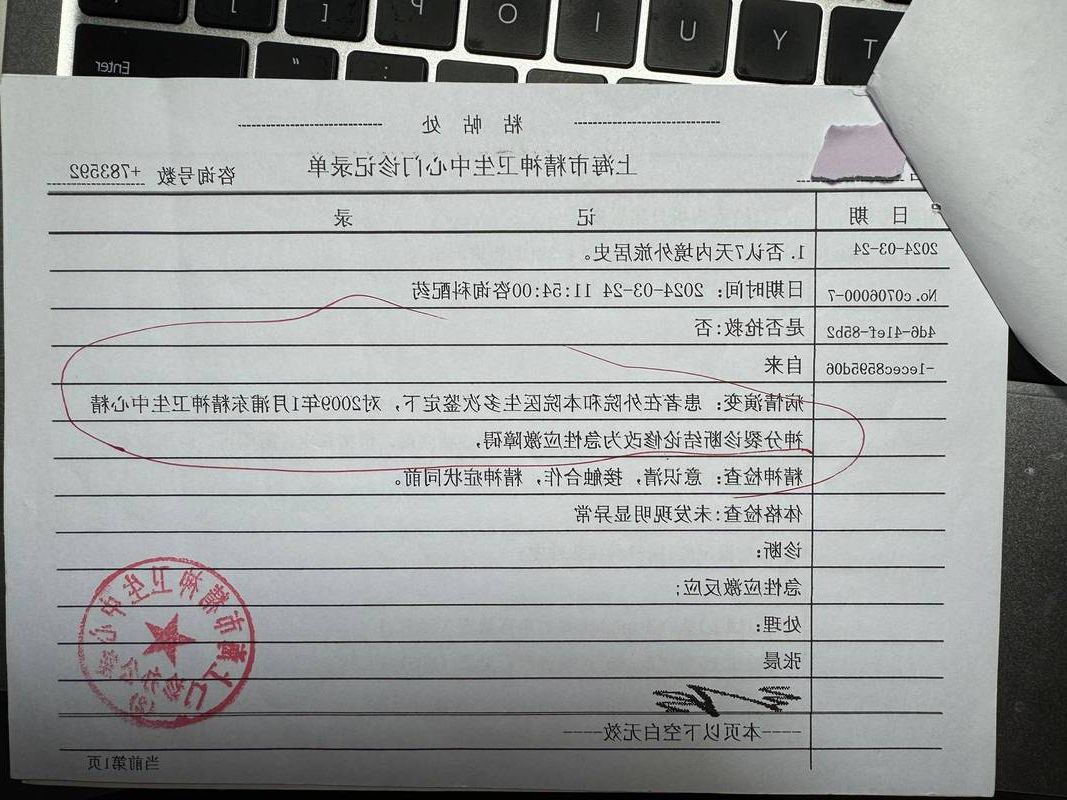 ---------------- 粘 帖 处 ----------------
上海市精神卫生中心门诊记录单 咨询号数 +783592
日 期 记 录
2024-03-24 1. 否认7天内境外旅居史。
No.c0706000-7 日期时间：2024-03-24 11:54:00咨询科配药
4d6-41ef-85b2 是否抢救:否
-1ecec8595d06 自来
病情演变：患者在外院和本院医生多次鉴定下，对2009年1月浦东精神卫生中心精
神分裂诊断结论修改为急性应激障碍，
精神检查：意识清，接触合作，精神症状同前。
体格检查:未发现明显异常
诊断：
急性应激反应;
处理：
张晨
----本页以下空白无效----
当前第1页
Enter
[
P
O
I
U
Y
T